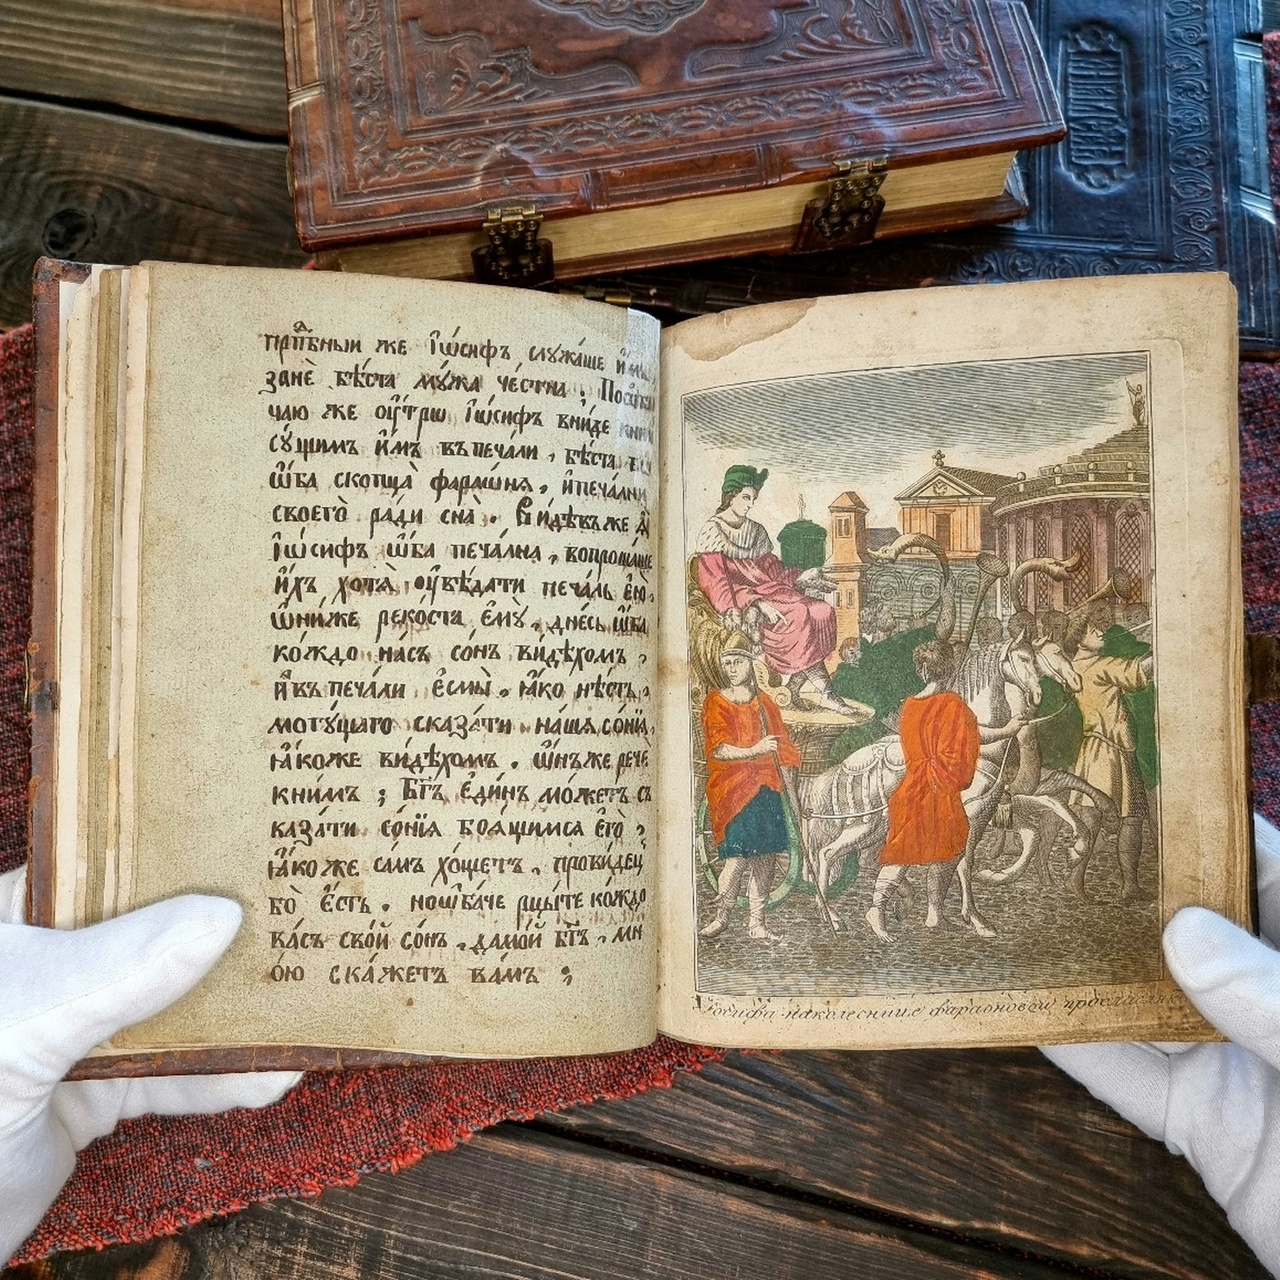 прпⷣбныи же і҆ѡ́сифъ служа́ше
занѐ бѣ́ста мꙋ́жа че́стна ;
чаю же ѹ҆́трꙋ і҆ѡ́сифъ вни́де
сꙋ́щимъ и҆̀мъ въ печа́ли , бѣ́ста
ѡ҆́ба скопца̀ фараѡ́нѧ , и҆ печа́лни
своегѡ̀ ра́ди сна̀ . Ви́дѣвъ же
і҆ѡ́сифъ ѡ҆́ба печа́лна , вопроша́ше
и҆̀хъ хотѧ̀ ѹ҆вѣ́дати печа́ль є҆ю̀ .
ѡ҆ни́же реко́ста є҆мꙋ̀ , дне́сь ѡ҆́ба
ко́ждо на́съ со́нъ ви́дѣхомъ ,
и҆ въ печа́ли є҆смы̀ . ꙗ҆́ко нѣ́сть ,
могꙋ́щаго сказа́ти на́ша со́нїѧ ,
ꙗ҆́коже ви́дѣхомъ . ѡ҆́нъ же речѐ
кни́мъ ; Бг҃ъ є҆ди́нъ мо́жетъ с
каза́ти со́нїѧ боѧ́щимсѧ є҆гѡ̀ ,
ꙗ҆́коже са́мъ хо́щетъ . прови́дец
бо̀ є҆́сть . но ѡ҆ба́че рцы́те ко́ждо
ва́съ сво́й со́нъ , да мо́й бг҃ъ , мн
о́ю ска́жетъ ва́мъ ;
Іосифа на колесницѣ фараоновой